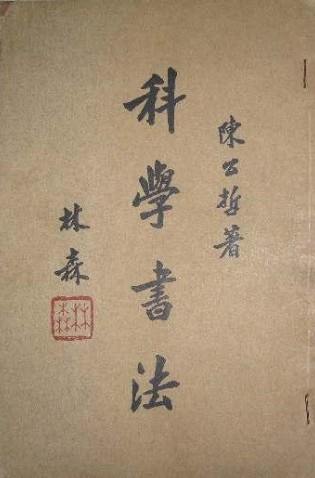 陳公哲著
科學書法
林森